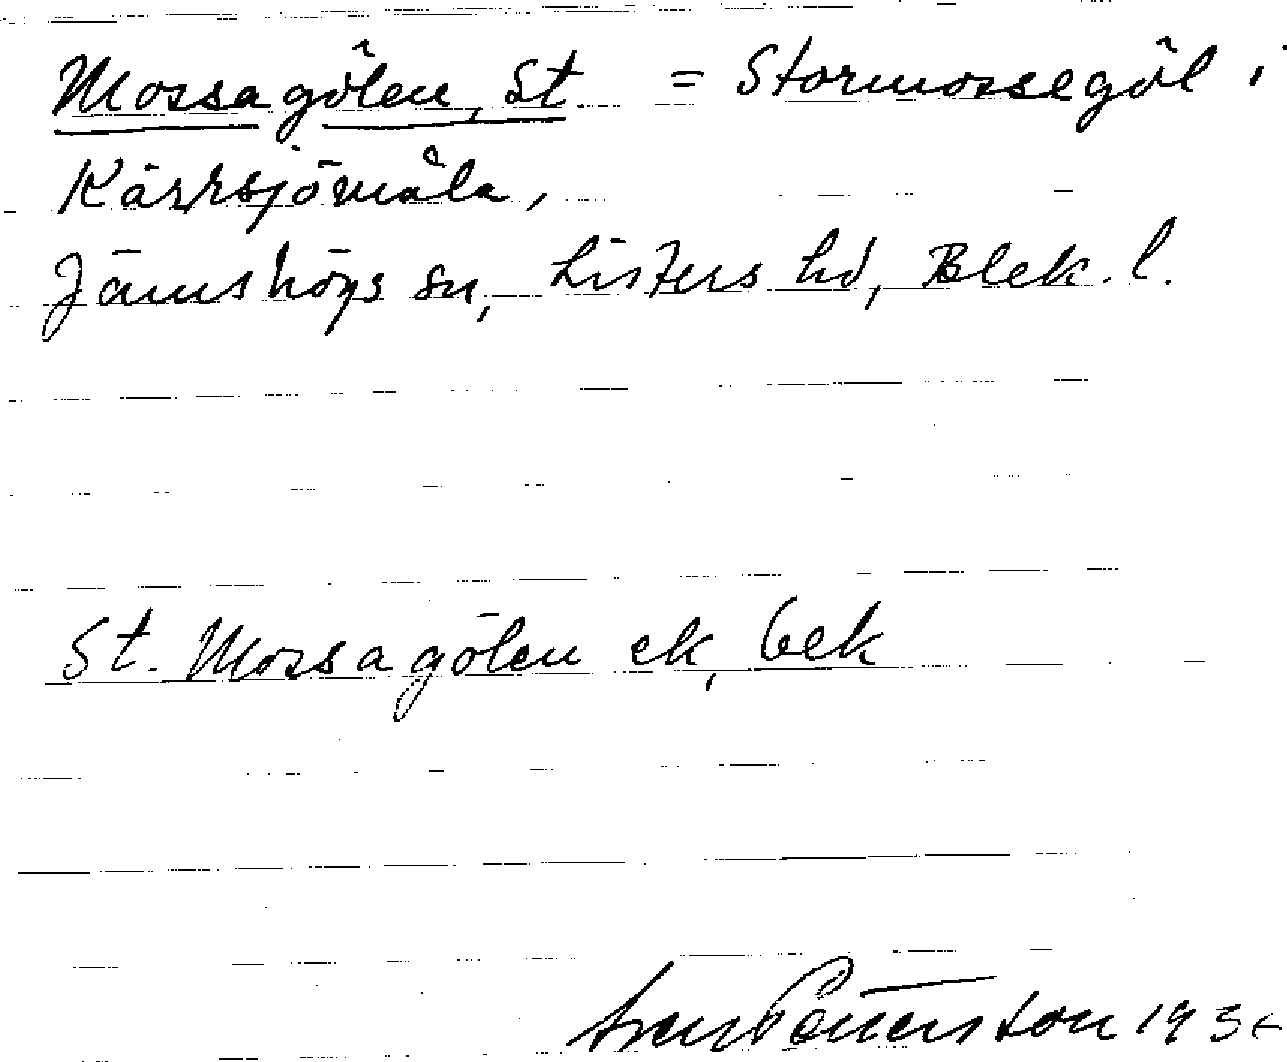 Mossagölen, St = Stormossegöl i
Kärrsjömåla,
Jämshögs sn, Listers hd, Blek. l.
St. Mossagölen ek, bek
Sven Benson 193